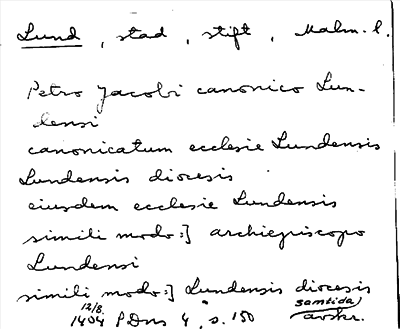 Lund, stad, stift, Malm. l.
Petro Jacobi canonico Lun-
densi
canonicatum ecclesie Lundensis
Lundensis diocesis
eiusdem ecclesie Lundensis
simili modo:] archiepiscopo
Lundensi
simili modo:] Lundensis diocesis
12/8 1404 PDns 4, s. 150 samtida avskr.